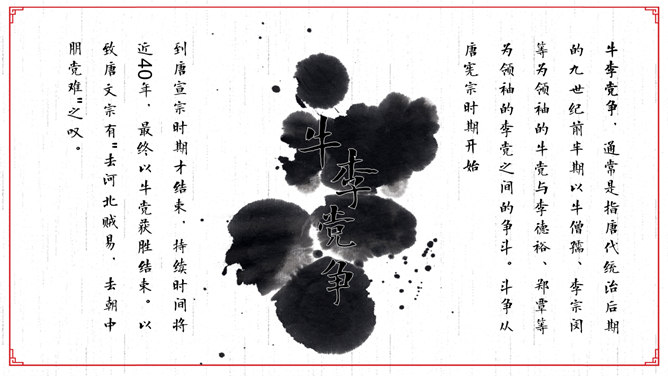 牛李党争，通常是指唐代统治后期
的九世纪前半期以牛僧孺、李宗闵
等为领袖的牛党与李德裕、郑覃等
为领袖的李党之间的争斗。斗争从
唐宪宗时期开始
牛李党争
到唐宣宗时期才结束，持续时间将
近40年，最终以牛党获胜结束。以
致唐文宗有"去河北贼易，去朝中
朋党难"之叹。